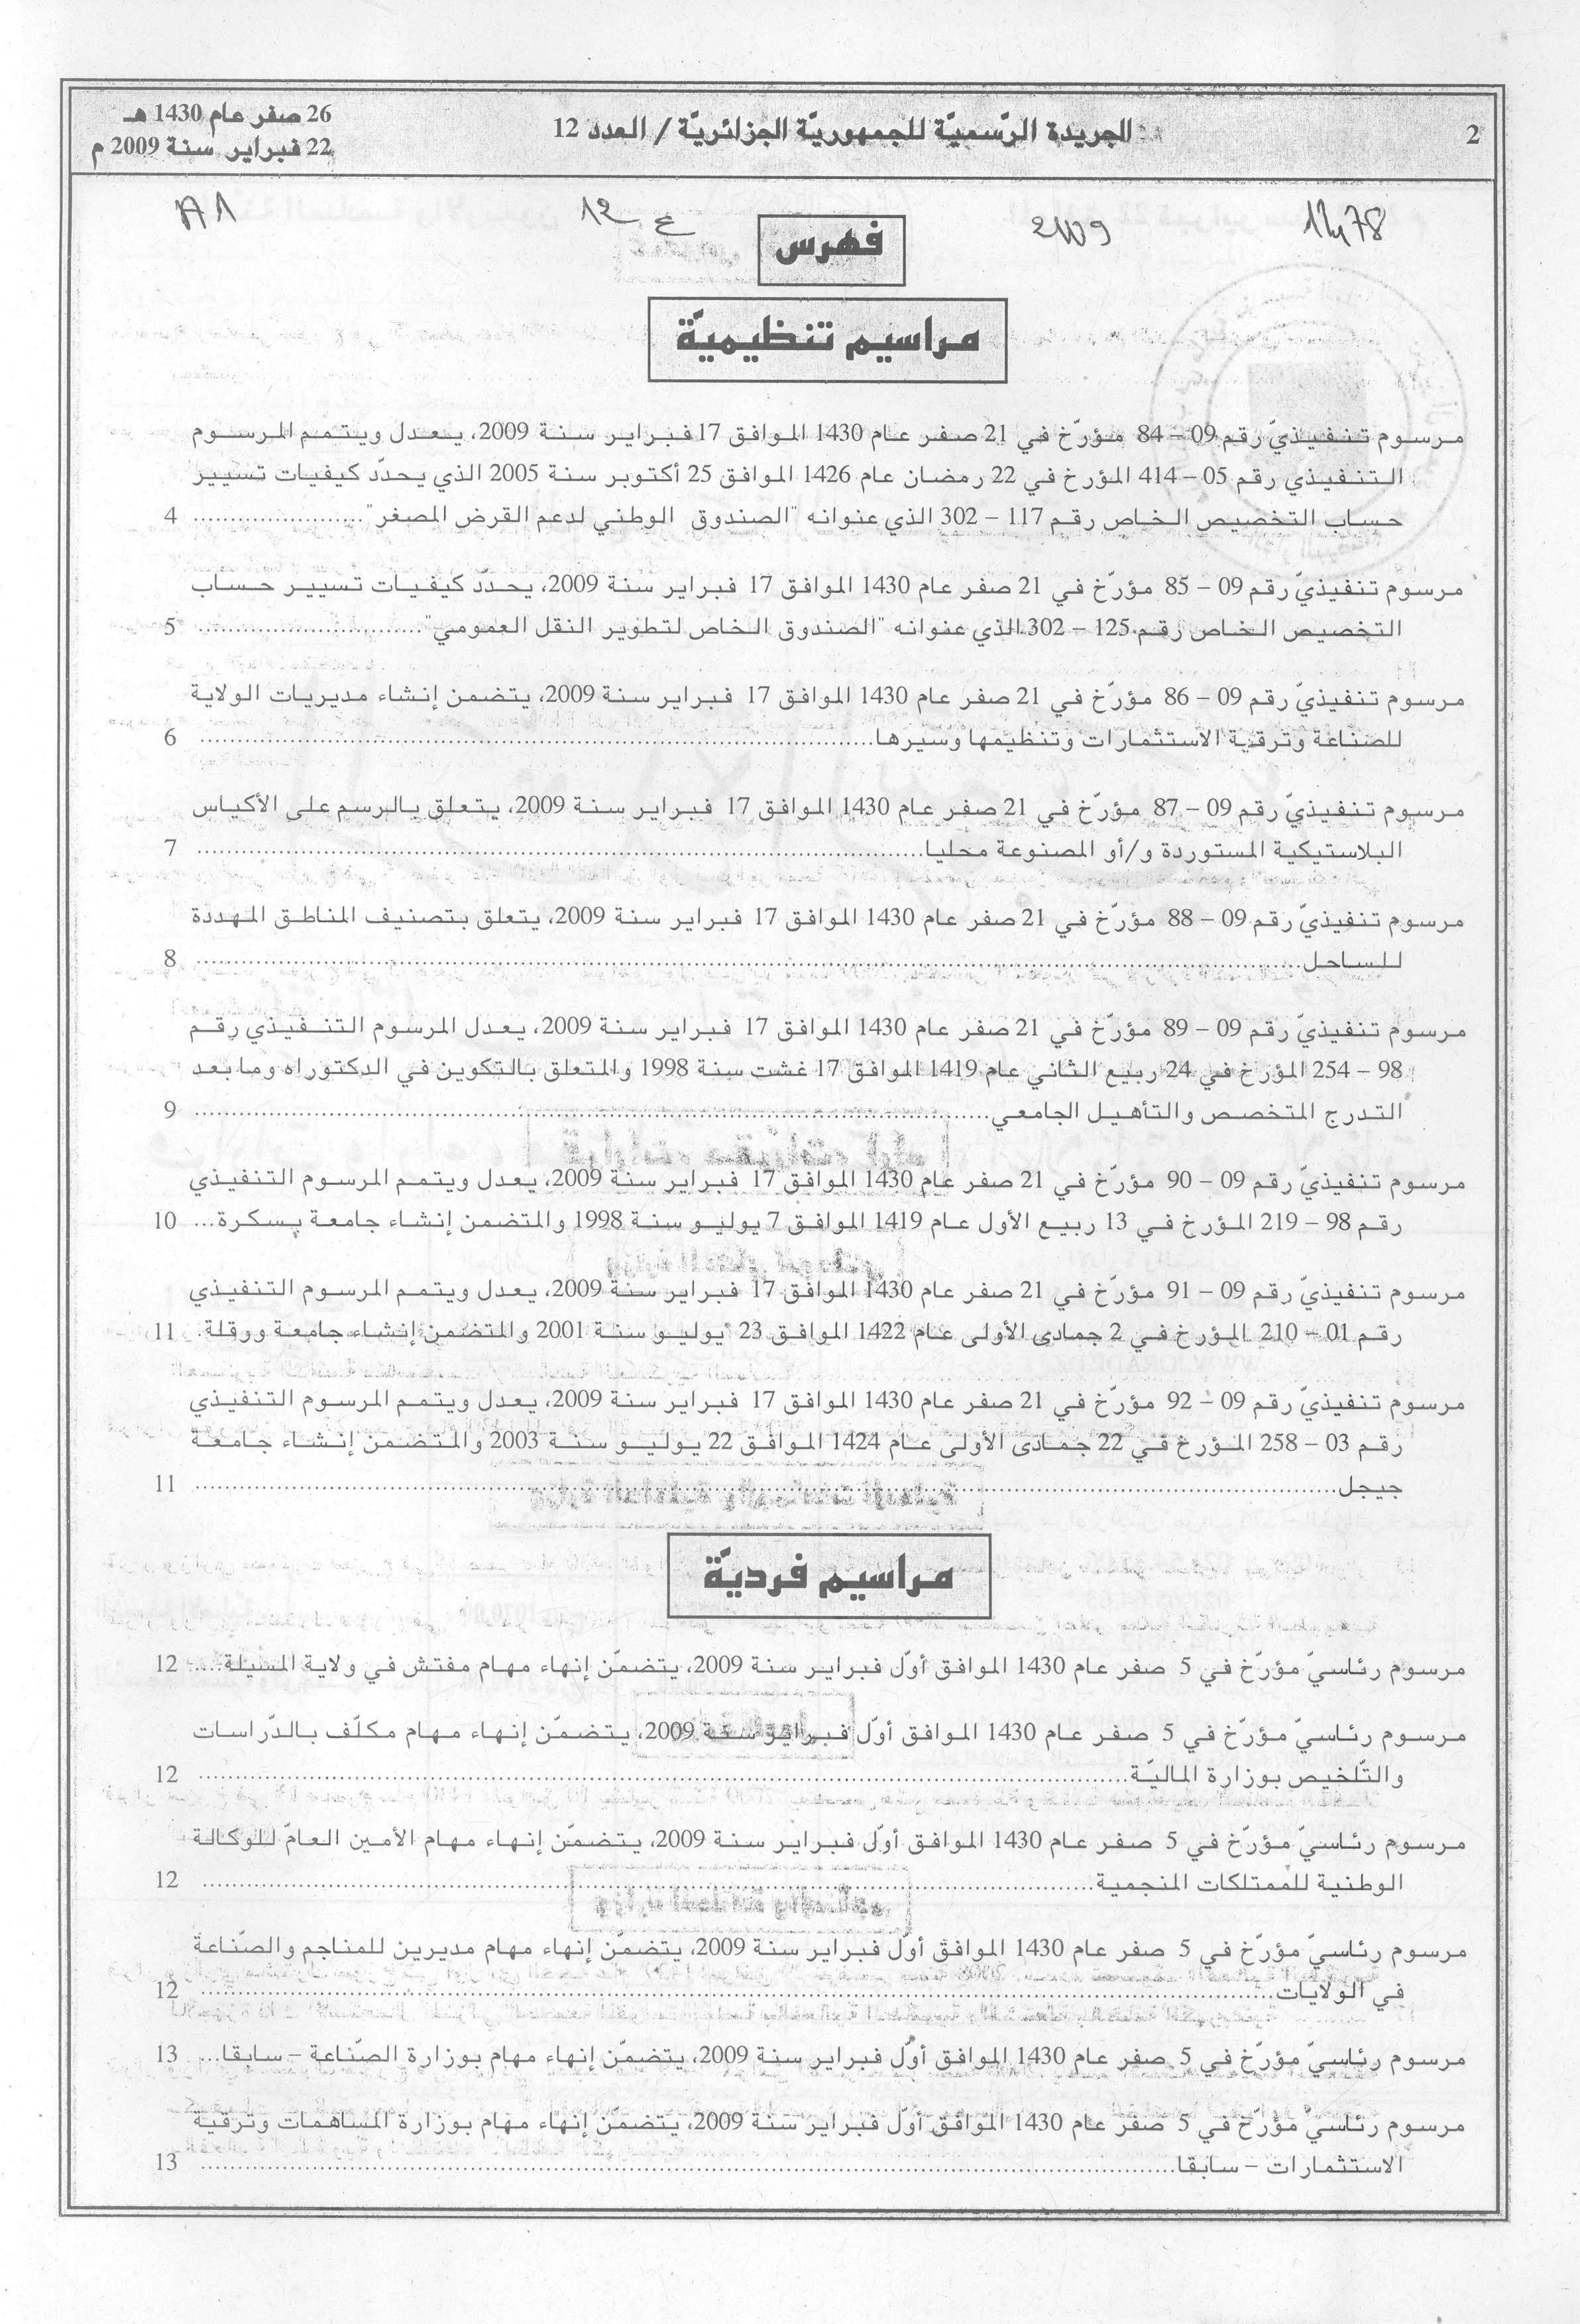 2
الجريدة الرّسميّة للجمهوريّة الجزائريّة / العدد 12
26 صفر عام 1430 هـ
22 فبراير سنة 2009 م
A1
12 ع
2009
فهرس
مراسيم تنظيميّة
مرسوم تنفيذيّ رقم 09 – 84 مؤرّخ في 21 صفر عام 1430 الموافق 17 فبراير سنة 2009، يعدل ويتمم المرسوم
التنفيذي رقم 05 – 414 المؤرخ في 22 رمضان عام 1426 الموافق 25 أكتوبر سنة 2005 الذي يحدّد كيفيات تسيير
حساب التخصيص الخاص رقم 117 – 302 الذي عنوانه "الصندوق الوطني لدعم القرض المصغر" ..................... 4
مرسوم تنفيذيّ رقم 09 – 85 مؤرّخ في 21 صفر عام 1430 الموافق 17 فبراير سنة 2009، يحدّد كيفيات تسيير حساب
التخصيص الخاص رقم 125 – 302 الذي عنوانه "الصندوق الخاص لتطوير النقل العمومي" ..................... 5
مرسوم تنفيذيّ رقم 09 – 86 مؤرّخ في 21 صفر عام 1430 الموافق 17 فبراير سنة 2009، يتضمن إنشاء مديريات الولاية
للصناعة وترقية الاستثمارات وتنظيمها وسيرها ..................... 6
مرسوم تنفيذيّ رقم 09 – 87 مؤرّخ في 21 صفر عام 1430 الموافق 17 فبراير سنة 2009، يتعلق بالرسم على الأكياس
البلاستيكية المستوردة و/أو المصنوعة محليا ..................... 7
مرسوم تنفيذيّ رقم 09 – 88 مؤرّخ في 21 صفر عام 1430 الموافق 17 فبراير سنة 2009، يتعلق بتصنيف المناطق المهددة
للساحل ..................... 8
مرسوم تنفيذيّ رقم 09 – 89 مؤرّخ في 21 صفر عام 1430 الموافق 17 فبراير سنة 2009، يعدل المرسوم التنفيذي رقم
98 – 254 المؤرخ في 24 ربيع الثاني عام 1419 الموافق 17 غشت سنة 1998 والمتعلق بالتكوين في الدكتوراه وما بعد
التدرج المتخصص والتأهيل الجامعي ..................... 9
مرسوم تنفيذيّ رقم 09 – 90 مؤرّخ في 21 صفر عام 1430 الموافق 17 فبراير سنة 2009، يعدل ويتمم المرسوم التنفيذي
رقم 98 – 219 المؤرخ في 13 ربيع الأول عام 1419 الموافق 7 يوليو سنة 1998 والمتضمن إنشاء جامعة بسكرة... 10
مرسوم تنفيذيّ رقم 09 – 91 مؤرّخ في 21 صفر عام 1430 الموافق 17 فبراير سنة 2009، يعدل ويتمم المرسوم التنفيذي
رقم 01 – 210 المؤرخ في 2 جمادى الأولى عام 1422 الموافق 23 يوليو سنة 2001 والمتضمن إنشاء جامعة ورقلة. 11
مرسوم تنفيذيّ رقم 09 – 92 مؤرّخ في 21 صفر عام 1430 الموافق 17 فبراير سنة 2009، يعدل ويتمم المرسوم التنفيذي
رقم 03 – 258 المؤرخ في 22 جمادى الأولى عام 1424 الموافق 22 يوليو سنة 2003 والمتضمن إنشاء جامعة
جيجل ..................... 11
مراسيم فرديّة
مرسوم رئاسيّ مؤرّخ في 5 صفر عام 1430 الموافق أوّل فبراير سنة 2009، يتضمّن إنهاء مهام مفتش في ولاية المسيلة..... 12
مرسوم رئاسيّ مؤرّخ في 5 صفر عام 1430 الموافق أوّل فبراير سنة 2009، يتضمّن إنهاء مهام مكلّف بالدّراسات
والتّلخيص بوزارة الماليّة ..................... 12
مرسوم رئاسيّ مؤرّخ في 5 صفر عام 1430 الموافق أوّل فبراير سنة 2009، يتضمّن إنهاء مهام الأمين العامّ للوكالة
الوطنية للممتلكات المنجمية ..................... 12
مرسوم رئاسيّ مؤرّخ في 5 صفر عام 1430 الموافق أوّل فبراير سنة 2009، يتضمّن إنهاء مهام مديرين للمناجم والصّناعة
في الولايات ..................... 12
مرسوم رئاسيّ مؤرّخ في 5 صفر عام 1430 الموافق أوّل فبراير سنة 2009، يتضمّن إنهاء مهام بوزارة الصّناعة – سابقا... 13
مرسوم رئاسيّ مؤرّخ في 5 صفر عام 1430 الموافق أوّل فبراير سنة 2009، يتضمّن إنهاء مهام بوزارة المساهمات وترقية
الاستثمارات – سابقا ..................... 13